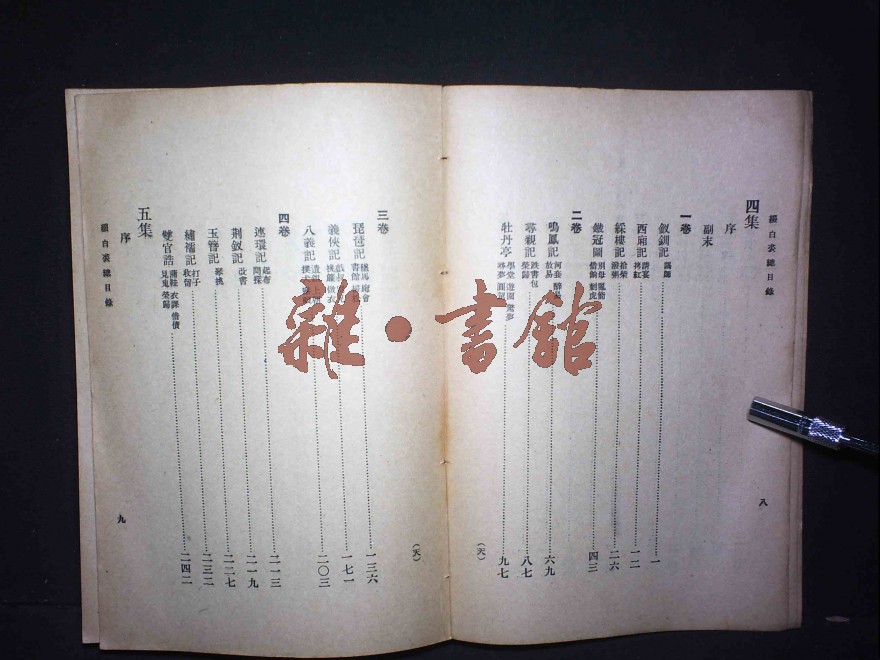 綴白裘總目錄
四集
序
副末
一卷
釵釧記 諷師 一
西廂記 請宴 拷紅 一二
綵樓記 拾柴 潑粥 二六
鐵冠圖 別母 亂箭 借餉 刺虎 四三
二卷
鳴鳳記 河套 醉易 放易 六九
尋親記 跌書包 榮歸 八七
牡丹亭 學堂 遊園 驚夢 尋夢 圓駕 九七
(天)
八
三卷
琵琶記 一三六
義俠記 一七一
八義記 二〇三
四卷
連環記 起布 問探 二一三
荆釵記 改書 二一九
玉簪記 琴挑 二二七
繡襦記 打子 收留 二三二
雙官誥 蒲鞋 衣課 借債 見鬼 榮歸 二四二
(天)
五集
序
綴白裘總目錄
九
雜·書館